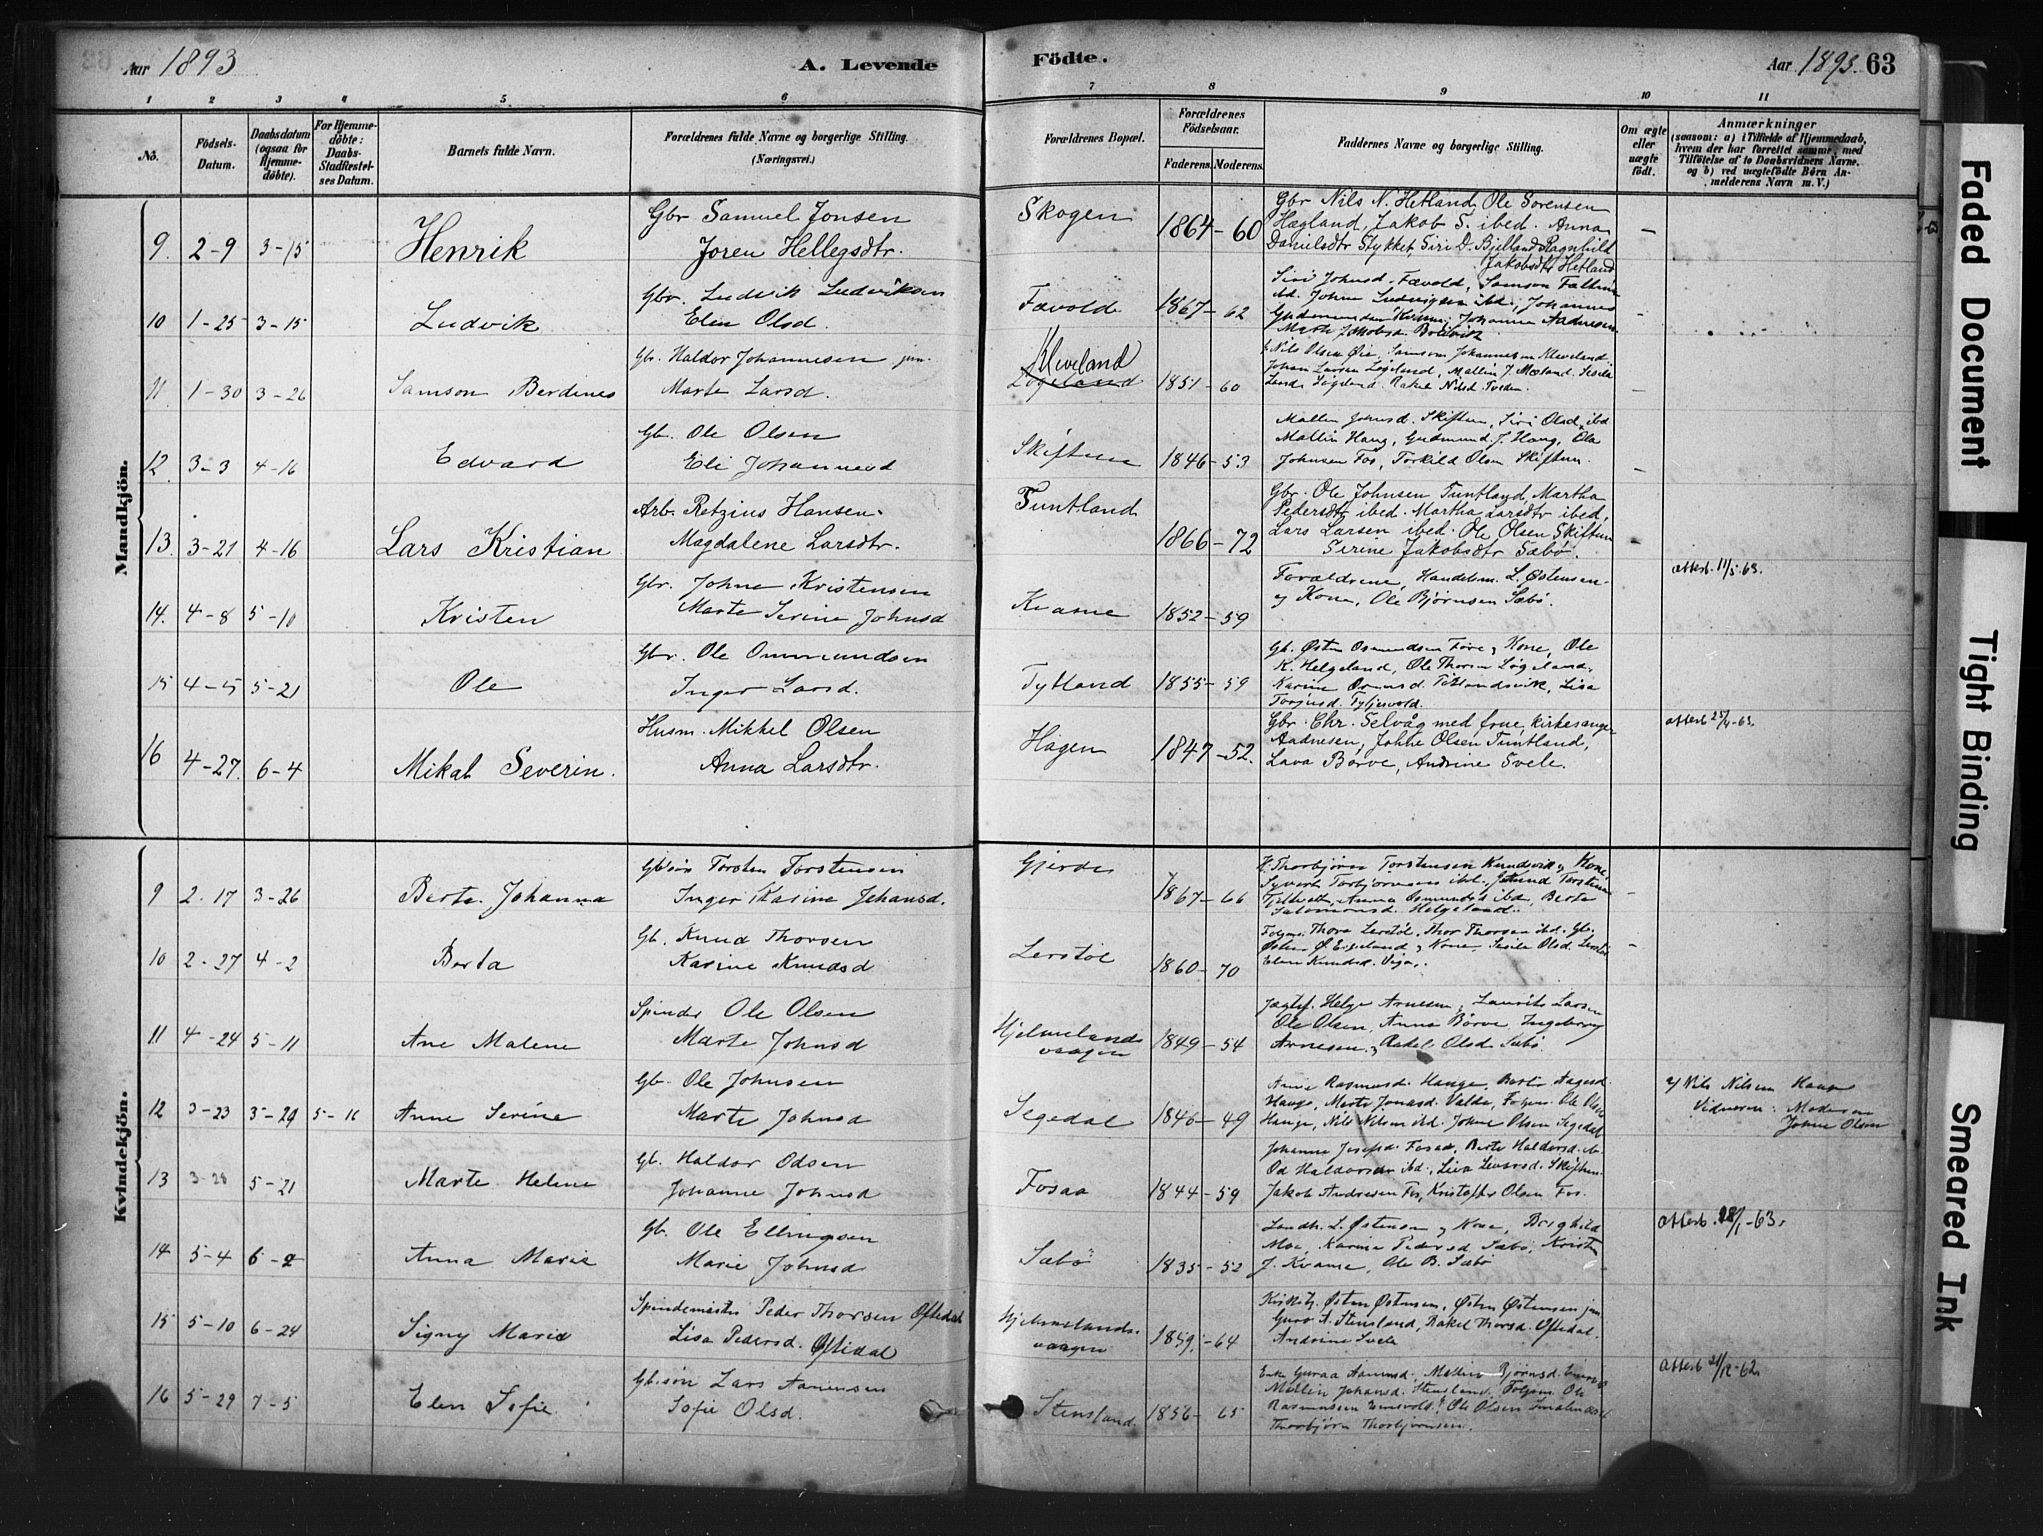 Aar 1893 A. Levende Födte. Aar 1893. 63
1 2 3 4 5 6 7 8 9 10 11
No.
Födsels-Datum.
Daabsdatum (ogsaa for Hjemme-döbte).
For Hjemme-döbte: Daabs-Stadfæstel-ses Datum.
Barnets fulde Navn.
Forældrenes fulde Navne og borgerlige Stilling. (Næringsvei.)
Forældrenes Bopæl.
Forældrenes Födselsaar.
Faderens. Moderens.
Faddernes Navne og borgerlige Stilling.
Om ægte eller uægte födt.
Anmærkninger
(saasom: a) i Tilfælde af Hjemmedaab,
hvem der har forrettet samme, med
Tilföielse af to Daabsvidners Navne,
og b) ved uægtefödte Börn An-
melderens Navn m. V.)
Mandkjön.
9. 2-9 3-15 Henrik Gbr Samuel Jonsen
Joren Hellegsdtr. Skogen 1864-60 Gbr Nils N. Hetland, Ole Sorensen
Hægland, Jakob S. ibed. Anna
Danielsdtr Stykket, Siri D. Bjelland, Ragnhild
Jakobsdtr Hetland
10 1-25 3-15 Ludvik Gbr. Ludvik Ludviksen
Elen Olsd. Fævolde 1867-62 Siri Johnsd. Fævold, Samson
11 1-30 3-26 Samson Berdines Gbr. Haldor Johannesen jun.
Marte Larsd. Kleveland Løgeland 1851-60 Nils Olsen Øie, Samson Johannesen Kleveland,
Johan Larsen Løgeland, Mallin J. Mæland. Sesila
Løgeland Rakel Nilsd Tveden.
12. 3-3 4-16 Edvard Gb. Ole Olsen
Eli Johannesd Skiftun 1846-53 Mallin Johnsd. Skiftun, Siri Olsd. ibd
Mallin Haug, Gudmund J. Haug, Ola
Johnsen Fos, Torkild Olsen Skiftun.
13. 3-21 4-16 Lars Kristian Arb. Retzius Hansen.
Magdalene Larsdtr. Tuntland 1866-72 Gbr. Ole Johnsen Tuntland, Martha
Pedersdtr ibed. Martha Larsdtr ibed,
Lars Larsen ibed. Ole Olsen Skiftun
Serine Jakobsdtr Sæbø.
14. 4-8 5-10 Kristen Gbr. Johne Kristensen
Marte Serine Johnsd Kvame 1852-59 Forældrene, Handelsm. L. Østensen
og Kone, Ole Bjørnsen Sæbø. attest. 11/5-63.
15 4-5 5-21 Ole Gbr. Ole Ommundsen
Inger Larsd. Tytland 1855-59 Gb. Østen Osmundsen Føre og Kone, Ole
K. Helgeland, Ole Thorsen Løgeland.
Karine Ormsd. Titlandsvik, Lisa
16 4-27. 6-4 Mikal Severin. Husm. Mikkel Olsen
Anna Larsdtr. Hagen 1847-52. Gbr. Chr. Selvåg med frue, kirkesanger
Aadnesen, Johne Olsen Tuntland,
Lava Børve, Andrine Svele. attest 25/4-63.
Kvindekjön.
9 2-17 3-26 Berte Johanna Gbsøn Torsten Torstensen
Inger Karine Johansd. Gjerde 1867-66 Thorbjøren Torstensen Kundsvik og Kone
Syvert Torbjørnsen ibd.
Salomonsd. Helgeland.
10 2-27 4-2 Berta Gb. Knud Thorsen
Karine Knudsd Lerstøl 1860-70 Thora Lerstøl, Thor Thorsen ibd. Gb.
Østen Ø. og Kone, Sesila Olsd. Lerstøl
Elen Knudsd.
11 4-24 5-11 Ane Malene Spinder Ole Olsen
Marte Johnsd Hjelmelands-vaagen 1849-54 Jægtsf. Helge Arnesen, Laurits Larsen
Ole Olsen, Anna Børve, Ingeborg
Arnesen og Rakel Olsd. Sæbø.
12 3-23 3-29 5-16 Anne Serine Gb. Ole Johnsen
Marte Johnsd Segedal 1846-49 Anna Rasmusd. Hauge, Berte Aagesd.
Hauge, Marte Jonasd. Valde, Ole Olsen
Hauge, Nils Nilsen ibd. Johne Olsen Segedal a/ Nils Nilsen Hauge
Vidneren: Moderen
Johne Olsen
13 3-28 5-21 Marte Helene Gb. Haldor Odsen
Johanne Johnsd Fosaa 1844-59 Johanne Josefsd. Fosaa, Berte Haldorsd. ib.
Od Haldorsen ibd., Skiftun.
Jakob Andresen Fos, Kristoffer Olsen Fos.
14 5-4 6-2 Anna Marie Gb. Ole Ellingsen
Marie Johnsd Sæbø 1835-52 Landh. L. Østensen og Kone, Brighild
Moe, Karine Pedersd Sæbø, Kristen
J. Kvame, Ole B. Sæbø attest. 28/1-63.
15 5-10 6-24 Signy Marie Spindemester Peder Thorsen Oftedal
Lisa Pedersd. Oftedal Hjelmelands-vaagen 1859-64 Østen Østensen, Østen Østensen jun
Guro A. Stensland, Rakel Thorsd. Oftedal.
Andrine Svele
16 5-29 7-5 Elen Sofie Gb.søn Lars Aamunsen
Sofie Olsd. Stensland 1856-65 Enke Guraa Aamundsd. Mallin Bjørnsd.
Mallin Johansd. Stensland.
Rasmussen Ole Olsen
Thorbjörn Thorbjørnsen. attest 21/12-62.
Faded Document
Tight Binding
Smeared Ink